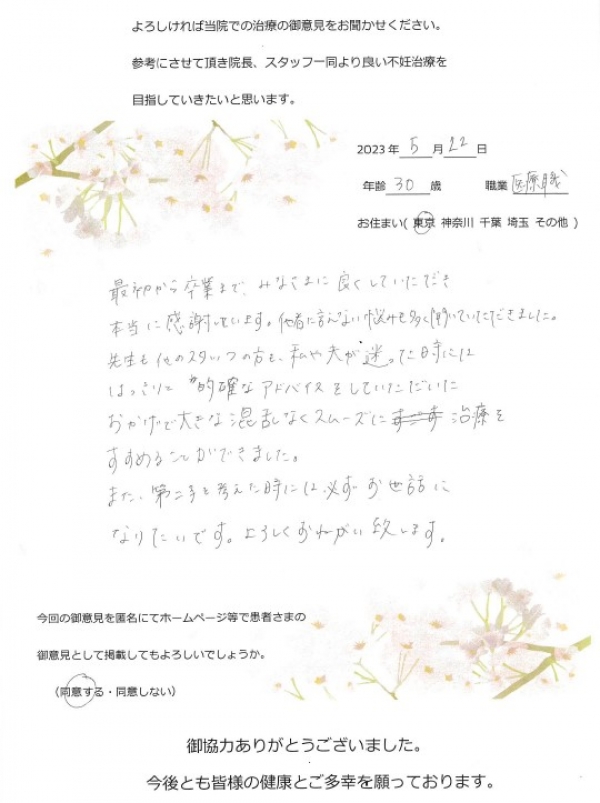 よろしければ当院での治療の御意見をお聞かせください。
参考にさせて頂き院長、スタッフ一同より良い不妊治療を
目指していきたいと思います。
2023年 5 月 22 日
年齢 30 歳 職業 医療職
お住まい( 東京 神奈川 千葉 埼玉 その他 )
最初から卒業まで、みなさまに良くしていただき
本当に感謝しています。他者に言えない悩みも多く聞いていただきました。
先生も他のスタッフの方も、私や夫が迷った時には
はっきりと 的確なアドバイスをしていただいた
おかげで大きな混乱なくスムーズに 治療を
すすめることができました。
また、第二子を考えた時には必ずお世話に
なりたいです。よろしくおねがい致します。
今回の御意見を匿名にてホームページ等で患者さまの
御意見として掲載してもよろしいでしょうか。
（同意する・同意しない）
御協力ありがとうございました。
今後とも皆様の健康とご多幸を願っております。